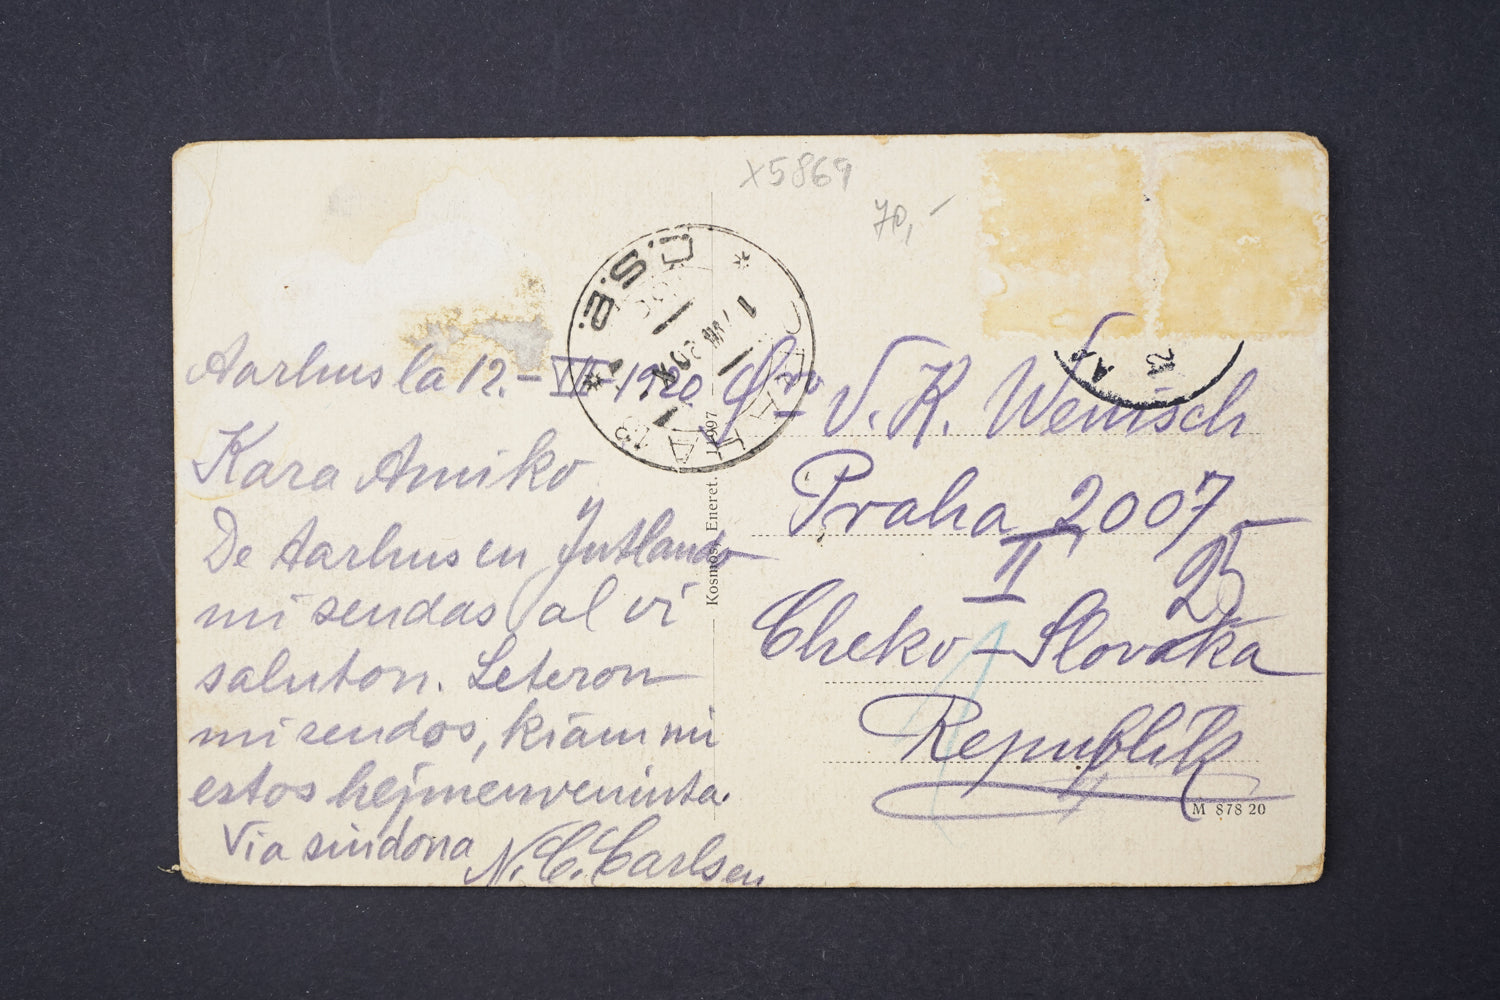 X5869
70,-
Č.S.P.
PRAHA 13
Aarhus la 12.-VII-1920
Kara Amiko
De Aarhus en Jutlando
mi sendas al vi
saluton. Leteron
mi sendos, kiam mi
estos hejmenveninta.
Via sindona N. C. Carlsen
Kosmos, Eneret. 1907
Sro V. K. Wenisch
Praha 2007
II 25
Cheko-Slovaka
Republik
M 878 20